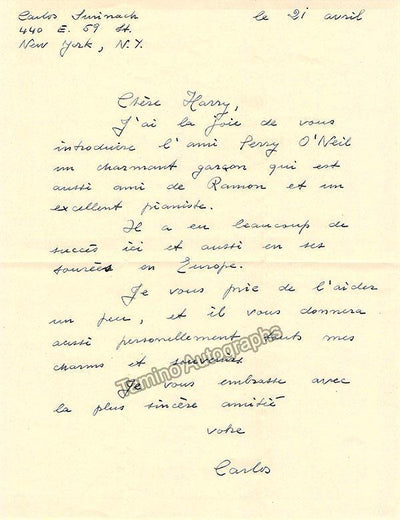 Carlos Surinach
440 E. 59 St.
New York, N.Y.
le 21 avril
Chère Harry,
J'ai la joie de vous
introduire l'ami Perry O'Neil
un charmant garçon qui est
aussi ami de Ramon et un
excellent pianiste.
Il a eu beaucoup de
succès ici et aussi en ses
tournées en Europe.
Je vous prie de l'aider
un peu, et il vous donnera
aussi personellement touts mes
charms et souvenirs
Tamino Autographs
Je vous embrasse avec
la plus sincère amitié
votre
Carlos